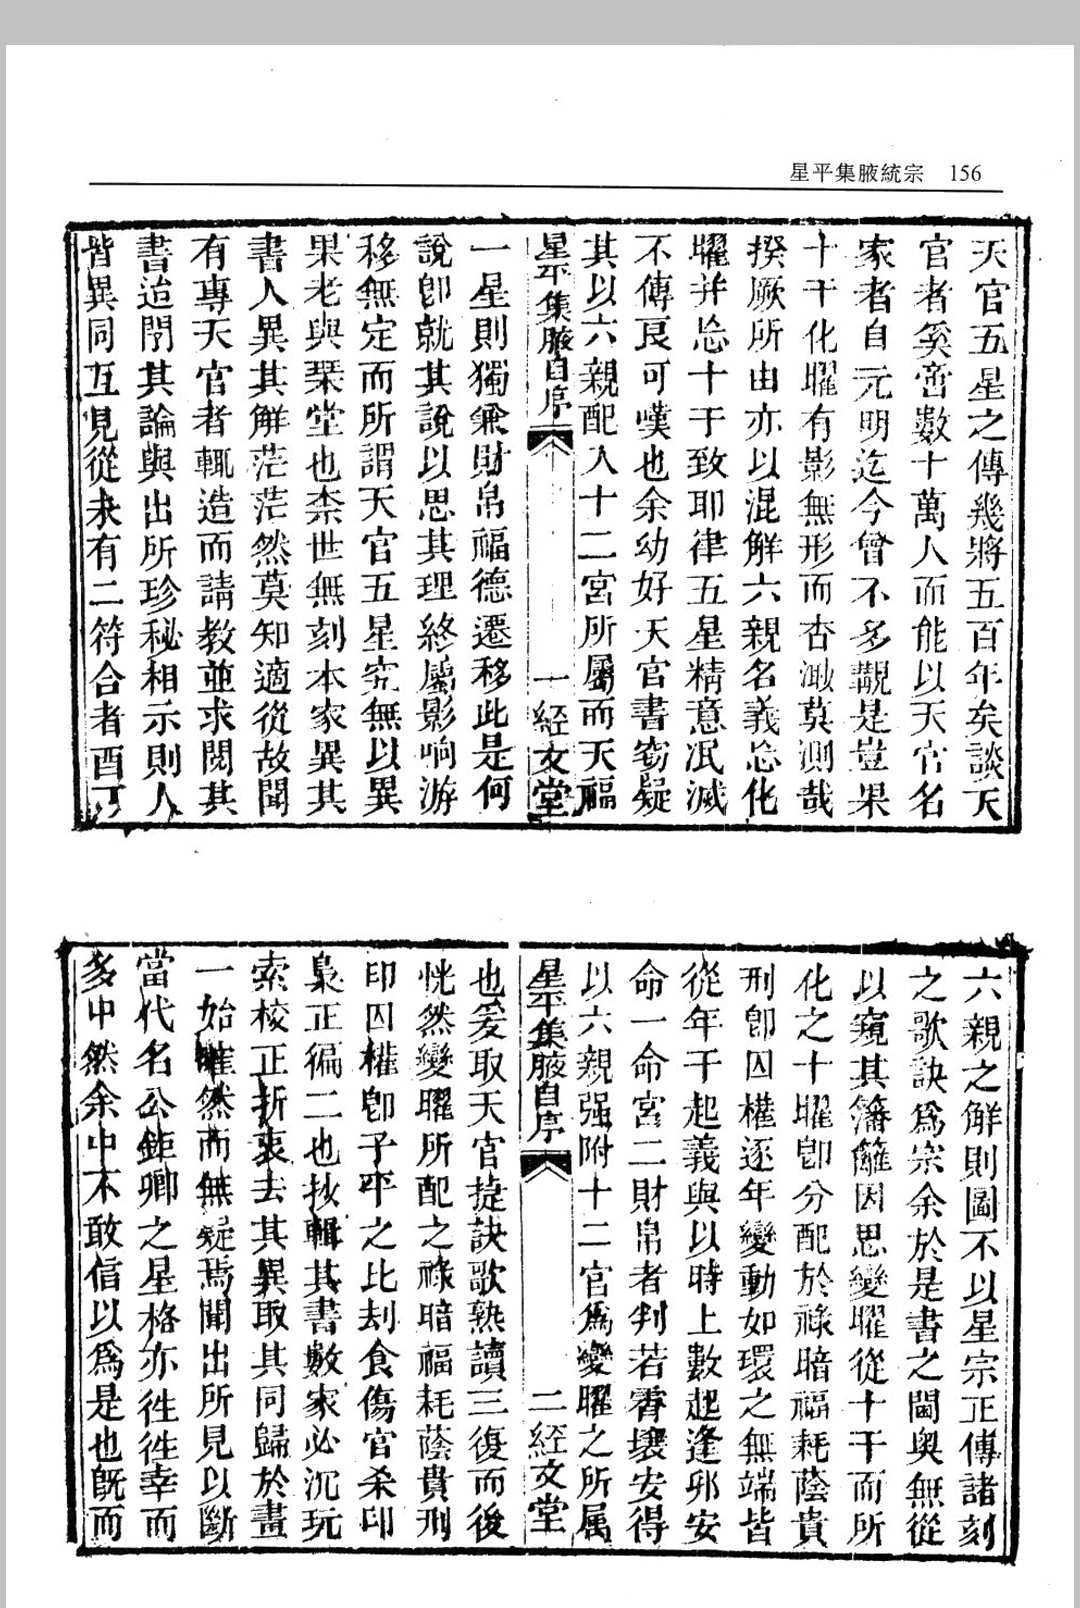 星平集腋統宗 156
天官五星之傳幾將五百年矣談天
官者奚啻數十萬人而能以天官名
家者自元明迄今曾不多覯是豈果
十干化曜有影無形而杳渺莫測哉
揆厥所由亦以混解六親名義忘化
曜并忘十干致耶律五星精意泯滅
不傳良可嘆也余幼好天官書竊疑
其以六親配入十二宮所屬而天福
星平集腋自序 一 經文堂
一星則獨兼財帛福德遷移此是何
說卽就其說以思其理終屬影响游
移無定而所謂天官五星究無以異
果老與琹堂也柰世無刻本家異其
書人異其解茫茫然莫知適從故聞
有專天官者輒造而請教並求閱其
書迨問其論與出所珍秘相示則人
皆異同互見從未有二符合者酉丁
六親之解則圖不以星宗正傳諸刻
之歌訣爲宗余於是書之閫奧無從
以窺其籓籬因思變曜從十干而所
化之十曜卽分配於祿暗福耗蔭貴
刑卽囚權逐年變動如環之無端皆
從年干起義與以時上數起逢卯安
命一命宮二財帛者判若霄壤安得
以六親强附十二官爲變曜之所属
星平集腋自序 二 經文堂
也爰取天官揵訣歌熟讀三復而後
恍然變曜所配之祿暗福耗蔭貴刑
印囚權卽子平之比刦食傷官杀印
梟正徧二也抄輯其書數家必沉玩
索校正折衷去其異取其同歸於畫
一始 然而無疑焉聞出所見以斷
當代名公鉅卿之星格亦徃徃幸而
多中然余中不敢信以爲是也旣而